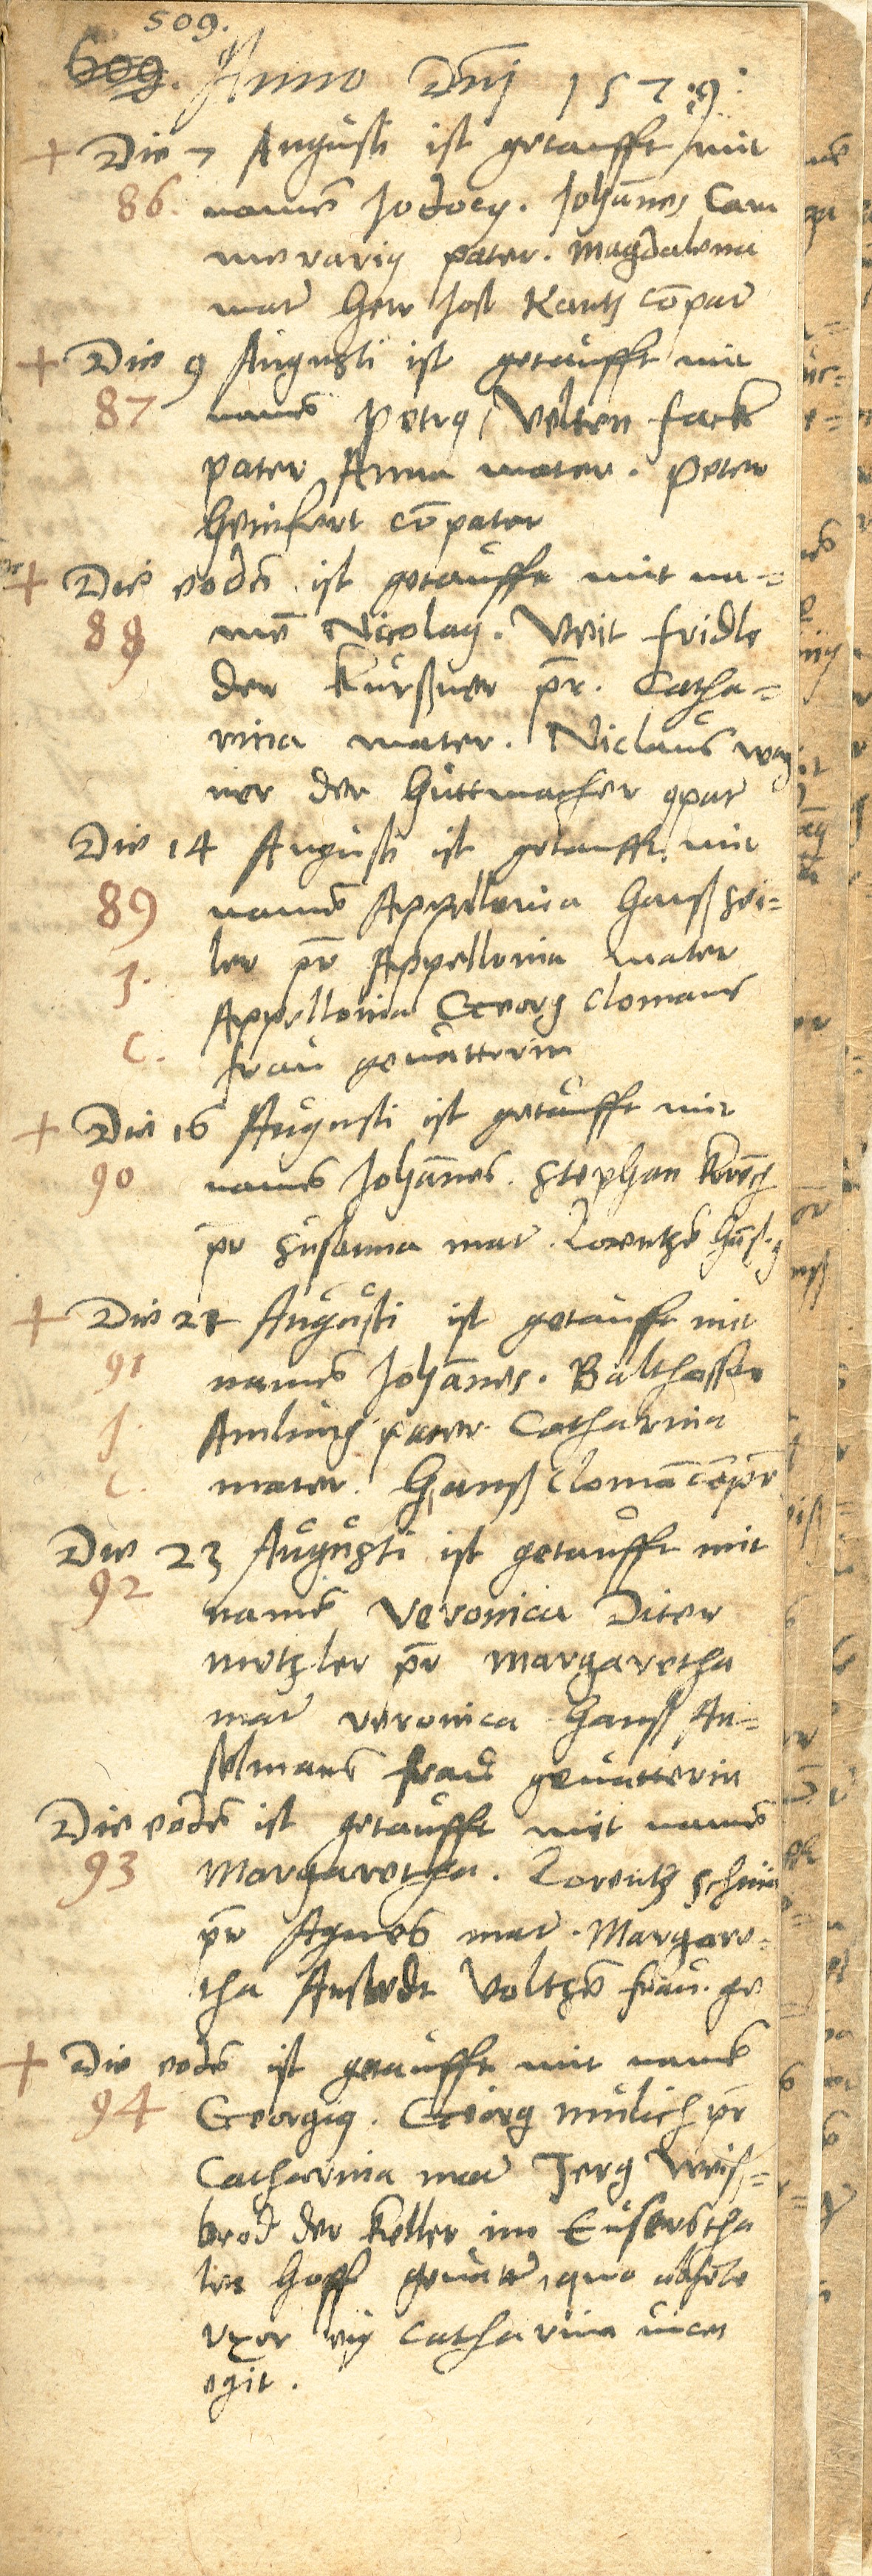 509.
609. Anno Dnj 1579:
+ Die 7 Augusti ist getaufft mit
86. namē Jodocq. Johānes Cam
merariq pater. Magdalena
mar̄ Herr Jost Kantz cōpar̄
+ Die 9 Augusti ist getaufft mit
87 namē Petrq, Velten fack
pater Anna mater. Peter
Heinfert cōpater
+ Die eodē ist getaufft mit na=
88 mē Nicolaq. Veit fridle
der Kurßner pr̄. Catha=
rina mater. Niclaus wag
ner der Huttmacher 9par̄
Die 14 Augusti ist getaufft mit
89 namē Appellonia Hanß sei=
J. ler pr̄ Appellonia mater
Appellonia Georg Clomans
C. frau gevatterin
+ Die 16 Augusti ist getaufft mit
90 namē Johānes. Stephan
pr̄ Susanna mar̄. Lorentzē
+ Die 21 Augusti ist getaufft mit
91 namē Johānes. Balthasser
J. Amling pater Catharina
C. mater. Hanß Clomā cōpr̄
Die 23 Augusti ist getaufft mit
92 namē Veronica Diter
metzler pr̄ Margaretha
mar̄ veronica Hanß An=
selmans frau gevatterin
Die eodē ist getaufft mit namē
93 Margaretha. Lorentz
pr̄ Agnes mar̄. Margare=
tha Anstedt Voltzē frau. ge
+ Die eodē ist getaufft mit namē
94 Georgiq. Georg mulich pr̄
Catharina mar̄ Jerg Weiß=
brod der Keller im Eusserstha
ler Hoff gevatter, quo absēte
vxor eiq Catharina uices
egit.